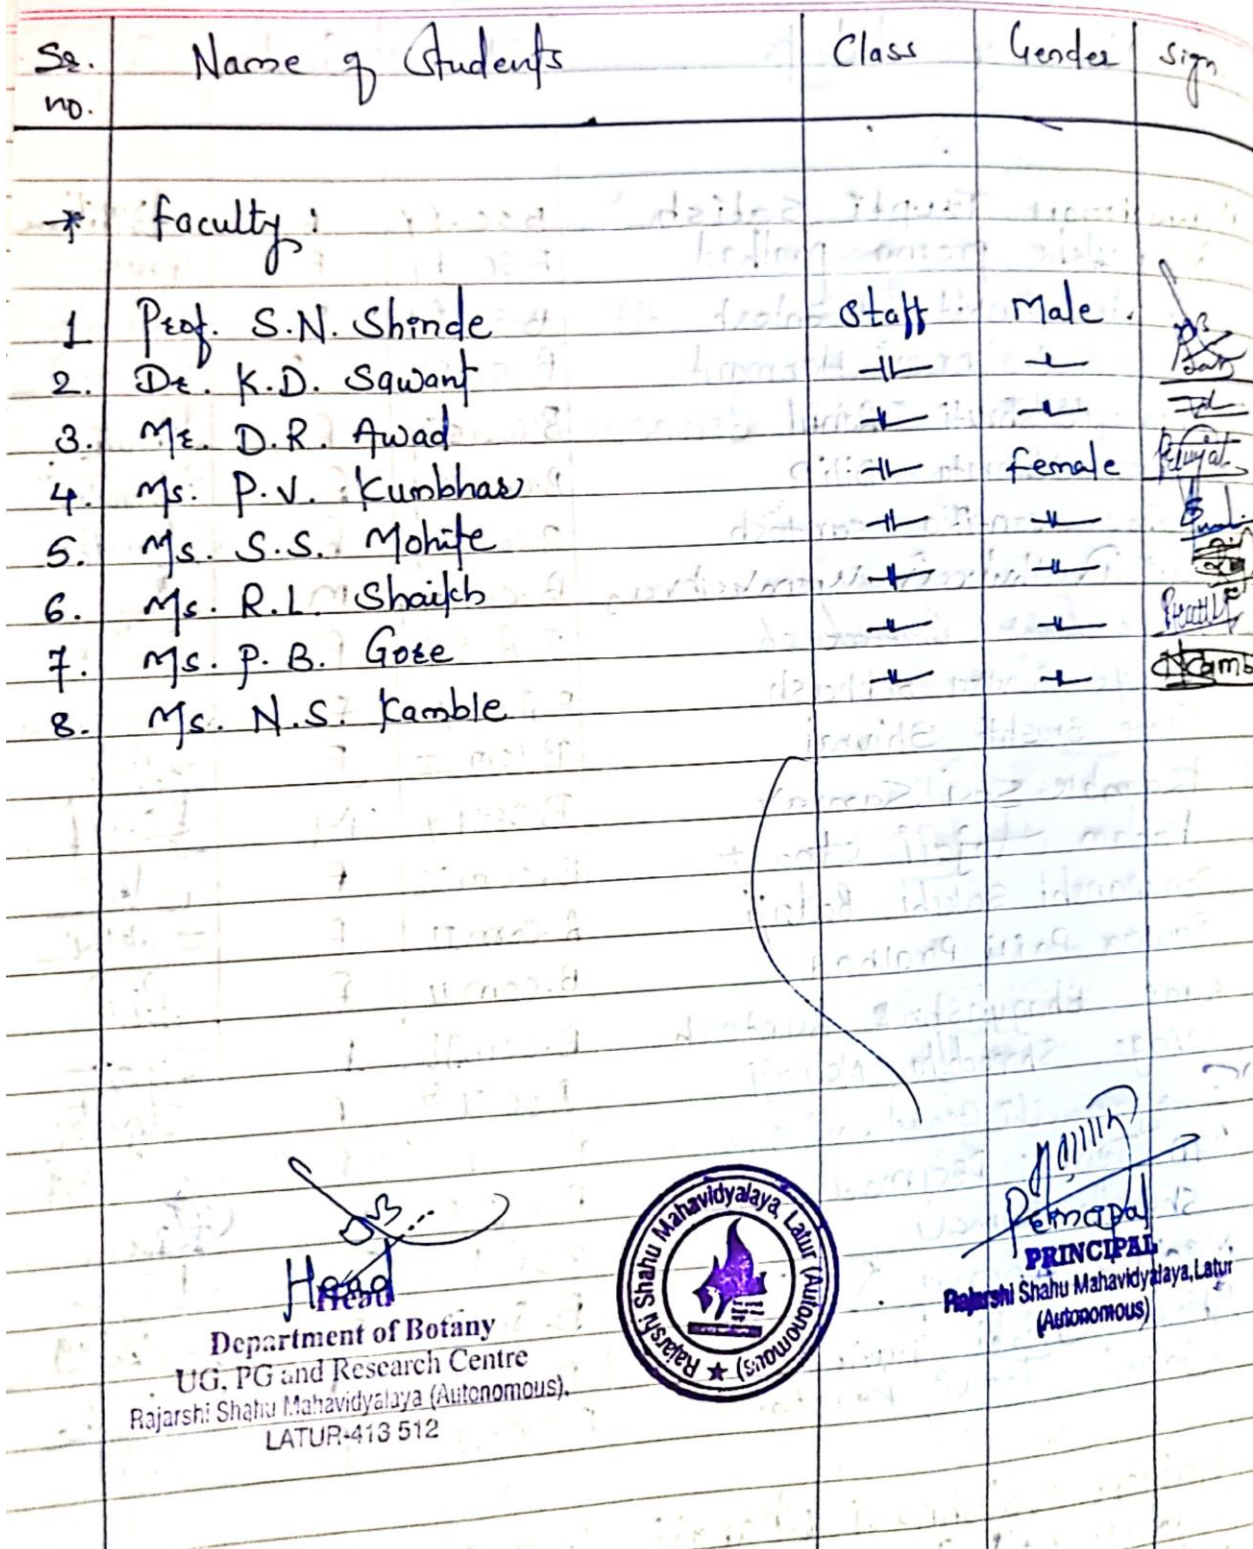 Sr. no. Name of Students Class Gender Sign
* Faculty :
1 Prof. S.N. Shinde Staff Male.
2. Dr. K.D. Sawant -॥- -॥-
3. Mr. D.R. Awad -॥- -॥-
4. Ms. P.V. Kumbhar -॥- Female
5. Ms. S.S. Mohite -॥- -॥-
6. Ms. R.L. Shaikh -॥- -॥-
7. Ms. P.B. Gore -॥- -॥-
8. Ms. N.S. Kamble -॥- -॥-
Head
Head
Department of Botany
UG, PG and Research Centre
Rajarshi Shahu Mahavidyalaya (Autonomous),
LATUR-413 512
Rajarshi Shahu Mahavidyalaya, Latur (Autonomous) ★
Principal
PRINCIPAL
Rajarshi Shahu Mahavidyalaya, Latur
(Autonomous)